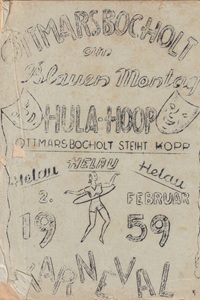 OTTMARSBOCHOLT
am
Blauen Montag
HULA-HOOP
OTTMARSBOCHOLT STEHT KOPP
Helau HELAU Helau
2. FEBRUAR
19 59
KARNEVAL